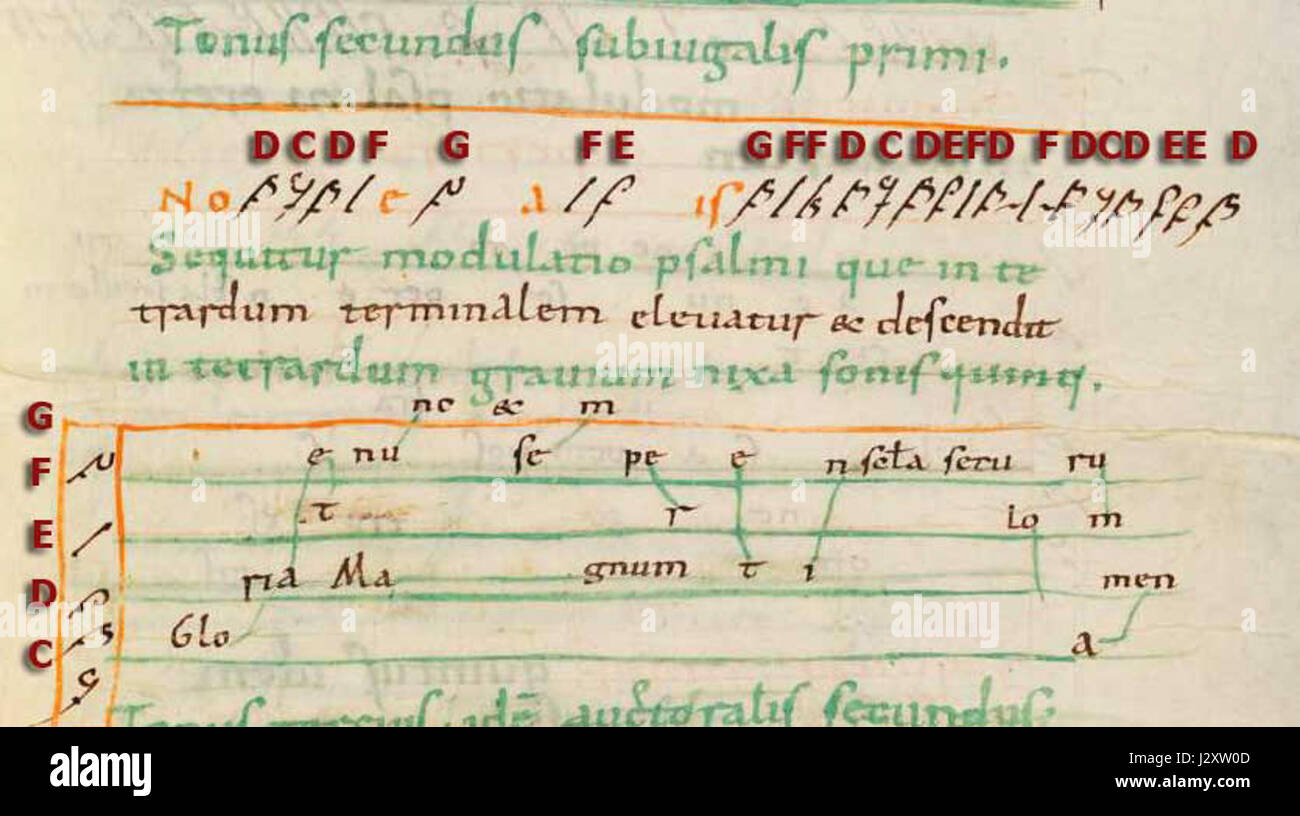 Tonuſ ſecunduſ ſubiugaliſ primi.
D C D F G F E G FF D C DEFD F DCD EE D
No e a iſ
Sequitur modulatio pſalmi que in te
trardum terminalem eleuatur & deſcendit
in tetrardum grauium nixa ſoniſ quinq.
G no & m
F e nu ſe pe e n ſcła ſecu ru
E t r lo m
D ria Ma gnum t i men
C Glo a
Tonuſ terciuſ. idē auctoraliſ ſecunduſ
alamy
Image ID: J2XW0D
www.alamy.com